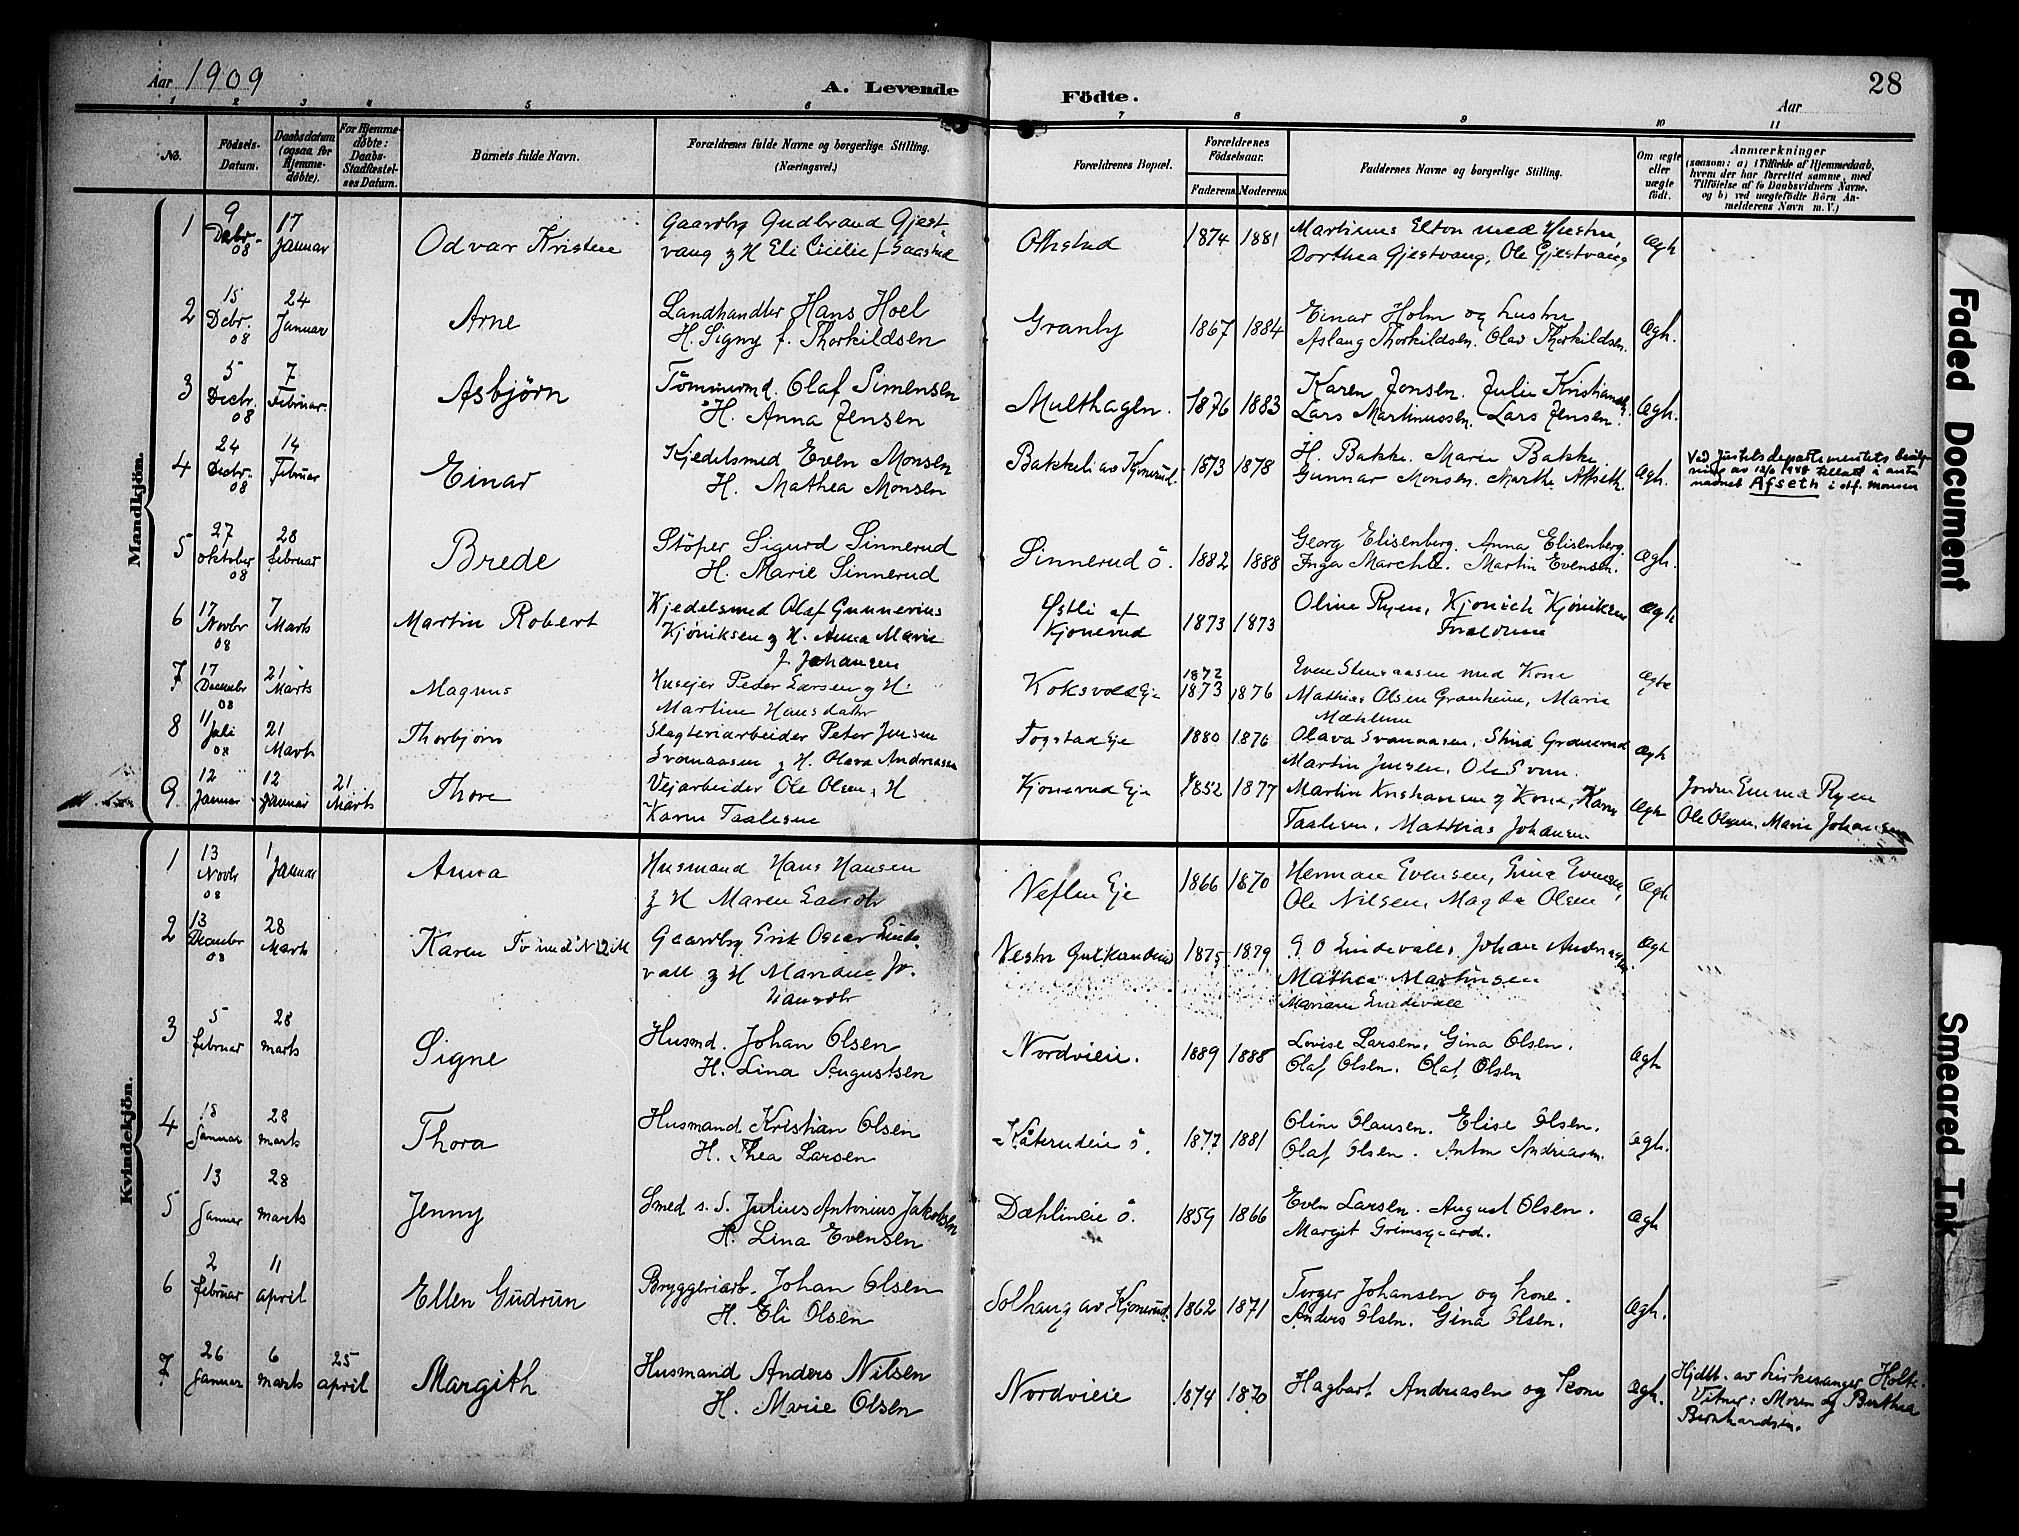 Aar 1909
A. Levende Födte.
Aar
28
1 2 3 4 5 6 7 8 9 10 11
No.
Födsels-Datum.
Daabsdatum (ogsaa for Hjemme-døbte).
For Hjemme-døbte: Daabs-Stadfæstel-ses Datum.
Barnets fulde Navn.
Forældrenes fulde Navne og borgerlige Stilling. (Næringsvei.)
Forældrenes Bopæl.
Forældrenes Födselsaar.
Faderens. Moderens.
Faddernes Navne og borgerlige Stilling.
Om ægte eller uægte födt.
Anmærkninger
(saasom: a) i Tilfælde af Hjemmedaab,
hvem der har forrettet samme, med
Tilföielse af to Daabsvidners Navne,
og b) ved uægtefödte Börn An-
melderens Navn m. V.)
Mandkjön.
1 9 Decbr. 08 17 Januar Odvar Kristen Gaardbr Gudbrand Gjest-
vang g H Eli Cicilie f. Gaastad 1874 1881 Martinus Elton med Hustru,
Dorthea Gjestvang, Ole Gjestvang Ægh
2 15 Decbr. 08 24 Januar Arne Landhandler Hans Hoel
H. Signy f. Thorkildsen Granby 1867 1884 Einar Holm og hustru
Aslaug Thorkildsen. Olav Thorkildsen. Ægh.
3 5 Decbr. 08 7 Februar. Asbjørn Tömmermd. Olaf Simensen
H. Anna Jensen Multhagen. 1876 1883 Karen Jonsen. Julie
Lars Martinussen. Lars Jensen. Ægh.
4 24 Decbr. 08 14 Februar Einar Kjedelsmed Even Monsen
H. Mathea Monsen Bakkeli av Kjonerud. 1873 1878 H. Bakke. Marie Bakke
Gunnar Monsen. Marthe Ægh.
Ved Justisdepartementets
av tillatt å anta
navnet Afseth i stf. Monsen
5 27 Oktober 08 28 Februar Brede Stöper Sigurd Sinnerud
H. Marie Sinnerud Sinnerud ö. 1882 1888 Georg Elisenberg. Anna Elisenberg.
Inga Martin Evensen. Ægh.
6 17 Novbr 08 7 Marts Martin Robert Kjedelsmed Olaf Gunnerius
Kjöniksen g H. Anna Marie
f. Johansen Østli af
Kjonerud 1873 1873 Oline Ryen, Kjonich Kjöniksen
Forældrene Ægh
7 17 December 08 21 Marts Magnus Huseier Peder Larsen g H.
Martine Hansdatter Koksvold Eje 1872
1873 1876 Even med Kone
Mathias Olsen Granheim, Marie
Mæhlum Ægte
8 11 Juli 08 21 Marts Thorbjörn Slagteriarbeider Peter Jensen
Svenaasen g H. Olava Andreassen Togstad Eje 1880 1876 Olava Svenaasen, Stina
Martin Jensen, Ole Svenn. Ægh
9 12 Januar 12 Januar 21 Marts Thore Veiarbeider Ole Olsen, H
Karen Taalesen Kjonerud Eje 1852 1877 Martin Kristiansen g Kone, Karen
Taalesen, Matthias Johansen Ægh
Jordm Emma Ryen
Ole Olsen, Marie Johansen
Kvindekjön.
1 13 Novbr 08 1 Januar Anna Husmand Hans Hansen
g H Maren Larsdtr Neflen Eje 1866 1870 Herman Evensen, Lina Evensen,
Ole Nilsen, Magda Olsen Ægh
2 13 December 08 28 Marts Karen Gaardbr Erik Oscar Linde-
vall g H Mariane Jo-
hansdtr 1875 1879 E O Lindevall, Johan Andreassen.
Mathea Martinsen
Mariane Lindevall Ægh
3 5 Februar 28 Marts Signe Husmd. Johan Olsen
H. Lina Augustsen Nordvieie. 1889 1888 Lovise Larsen. Gina Olsen.
Olaf Olsen. Olaf Olsen Ægh
4 18 Januar 28 Marts Thora Husmand Kristian Olsen
H. Thea Larsen Kåterudeie ö. 1877 1881 Oline Olausen. Elise Olsen.
Olaf Olsen. Anton Andreasen. Ægh.
5 13 Januar 28 Marts Jenny Smed s. S. Julius Antonius Jakobsen
H. Lina Evensen Dæhlineie ö. 1859 1866 Even Larsen. August Olsen.
Margit Grimsgaard. Ægh
6 2 Februar 11 April Ellen Gudrun Bryggeriarb. Johan Olsen
H. Eli Olsen Solhaug av Kjonerud. 1862 1871 Torger Johansen og kone.
Anders Olsen. Gina Olsen. Ægh.
7 26 Januar 6 Marts 25 April Margith Husmand Anders Nilsen
H. Marie Olsen Nordvieie 1874 1870 Hagbart Andreasen og kone Ægh.
Hjdbt. av kirkesanger Holte.
Vitner: Moren og Berthea
Bernhardsen.
Faded Document
Smeared Ink